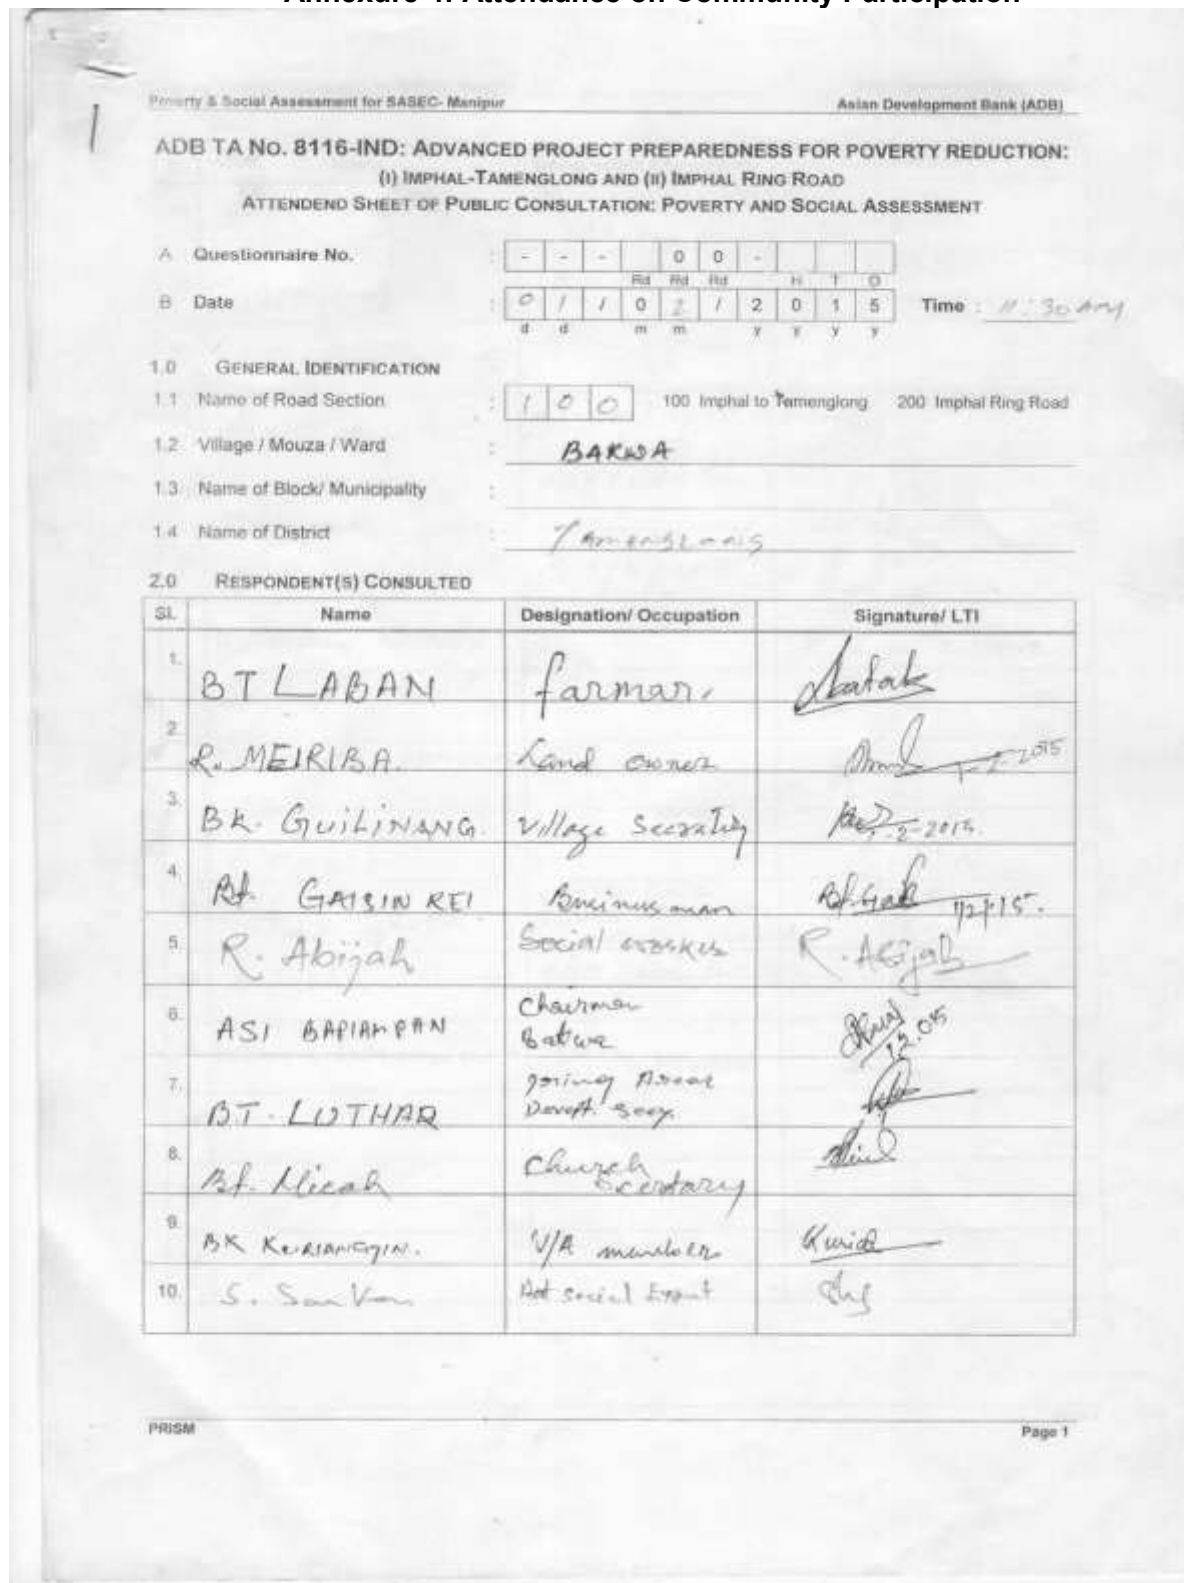 Annexure 4: Attendance on Community Participation
1
Poverty & Social Assessment for SASEC- Manipur Asian Development Bank (ADB)
ADB TA No. 8116-IND: ADVANCED PROJECT PREPAREDNESS FOR POVERTY REDUCTION:
(I) IMPHAL-TAMENGLONG AND (II) IMPHAL RING ROAD
ATTENDEND SHEET OF PUBLIC CONSULTATION: POVERTY AND SOCIAL ASSESSMENT
A Questionnaire No. : - - - 0 0 -
Rd Rd Rd H T O
B Date : 0 1 / 0 2 / 2 0 1 5 Time : 11:30 AM
d d m m y y y y
1.0 GENERAL IDENTIFICATION
1.1 Name of Road Section : 1 0 0 100 Imphal to Tamenglong 200 Imphal Ring Road
1.2 Village / Mouza / Ward : BAKWA
1.3 Name of Block/ Municipality :
1.4 Name of District : TAMENGLONG
2.0 RESPONDENT(S) CONSULTED
SL. Name Designation/ Occupation Signature/ LTI
1. BT LABAN farmar.
2. R. MEIRIBA. Land owner 1-2-2015
3. BK. GUILINANG. Village 2-2015.
4. Bt. GAISIN REI Businusman 1/2/15.
5. R. Abijah Social worker R. Abijah
6. ASI BAPIAMPAN Chairman
Batwa
7. BT. LUTHAR Area
Devept. Secy.
8. Bt. Micah Church
Scerdary
9. BK V/A
10. S. social
PRISM Page 1